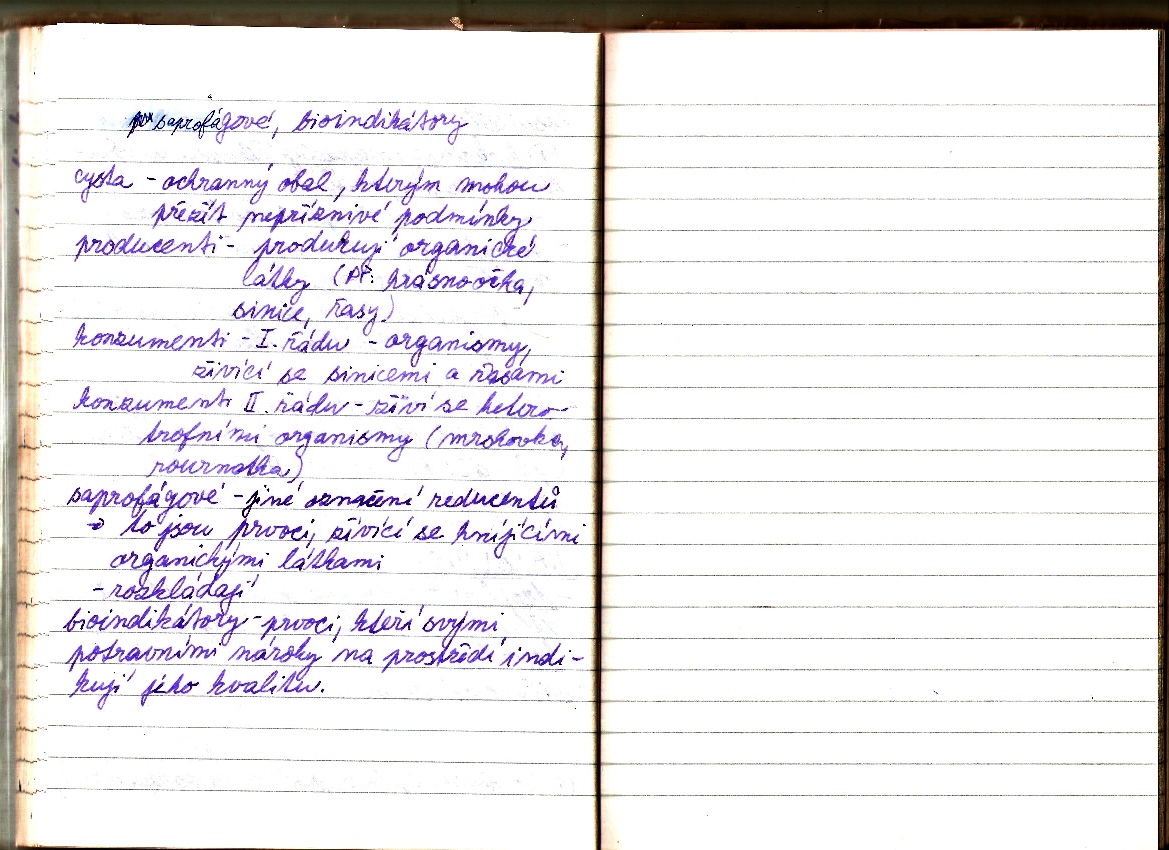 saprofágové, bioindikátory
cysta - ochranný obal, kterým mohou
přežít nepříznivé podmínky
producenti - produkují organické
látky (př. krásnoočka,
sinice, řasy)
konzumenti - I. řádu - organismy,
živící se sinicemi a řasami
konzumenti II. řádu - živí se hetero-
trofními organismy (mrskavka,
rournatka)
saprofágové - jiné označení reducentů
to jsou prvoci, živící se hnijícími
organickými látkami
- rozkládají
bioindikátory - prvoci, kteří svými
potravními nároky na prostředí indi-
kují jeho kvalitu.